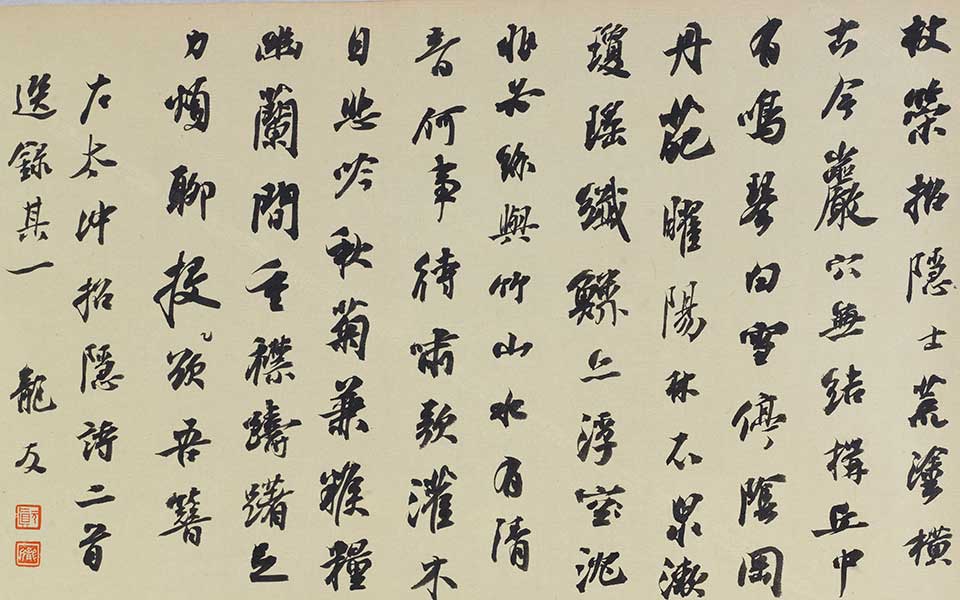 杖策招隱士荒塗橫
古今巖穴無結構丘中
有鳴琴白雪停陰岡
丹葩曜陽林石泉漱
瓊瑤纖鱗亦浮
非必絲與竹山水有清
音何事待嘯歌灌木
自悲吟秋菊兼糇糧
幽蘭間重襟躊躇足
力煩聊投欲吾簪
左太沖招隱詩二首
選錄其一 龍友